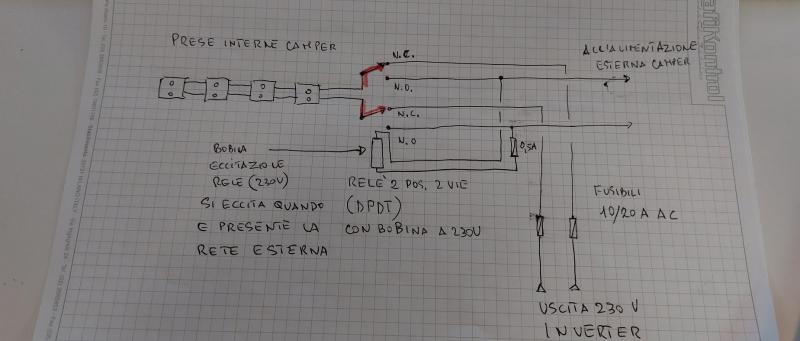 PRESE INTERNE CAMPER
N.C.
ALL'ALIMENTAZIONE
ESTERNA CAMPER
N.O.
N.C.
N.O
0,5A
BOBINA
ECCITAZIONE
RELE' (230V)
SI ECCITA QUANDO
E PRESENTE LA
RETE ESTERNA
RELE' 2 POS. 2 VIE
(DPDT)
CON BOBINA A 230V
FUSIBILI
10/20 A AC
USCITA 230 V
INVERTER